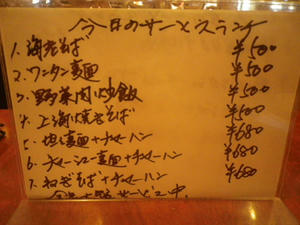 今日のサービスランチ
1. 海老そば ¥500
2. ワンタン麺 ¥500
3. 野菜肉炒飯 ¥500
4. 上海焼きそば ¥500
5. 坦々麺+チャーハン ¥680
6. チャーシュー麺+チャーハン ¥680
7. ねぎそば+チャーハン ¥680
中